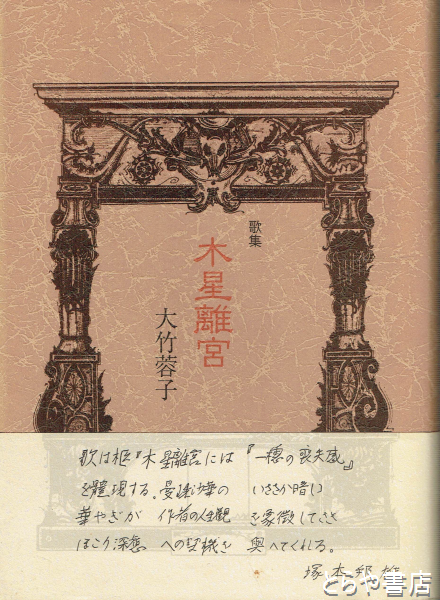 歌集
木星離宮
大竹蓉子
木星離宮には『一穂の喪失感』
を體現する。曼珠沙華の いささか暗い
華やぎが 作者の人生観 を象徴して
への契機を 與へてくれる。
塚本邦雄
とらや書店